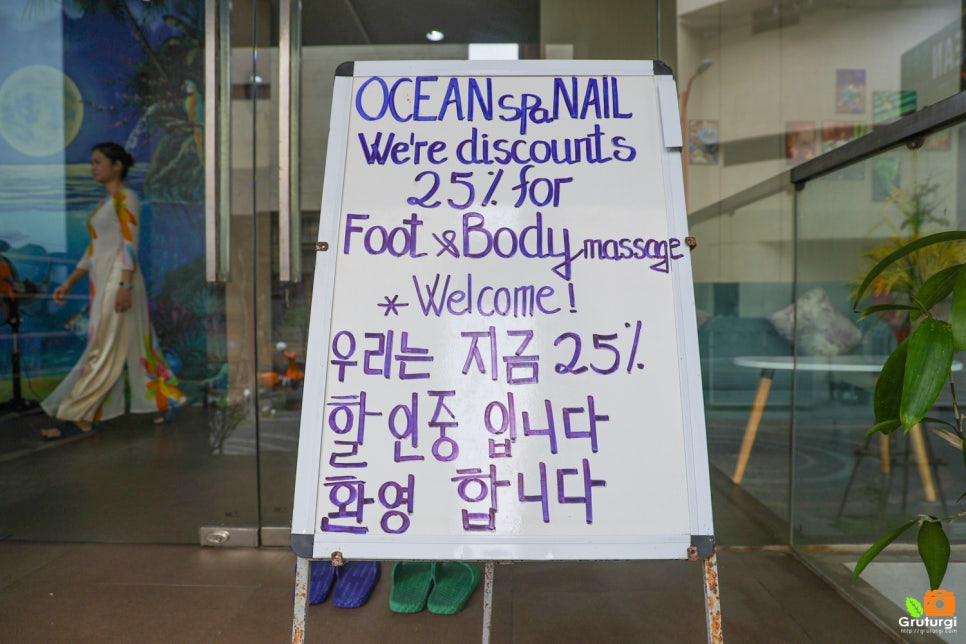 OCEAN spa NAIL
We're discounts
25% for
Foot & Body massage
* Welcome!
우리는 지금 25%
할인중 입니다
환영 합니다
Gruturgi
http://gruturgi.com